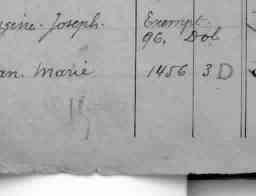 Joseph. Exempt
96, Dol
Marie 1456 3 D